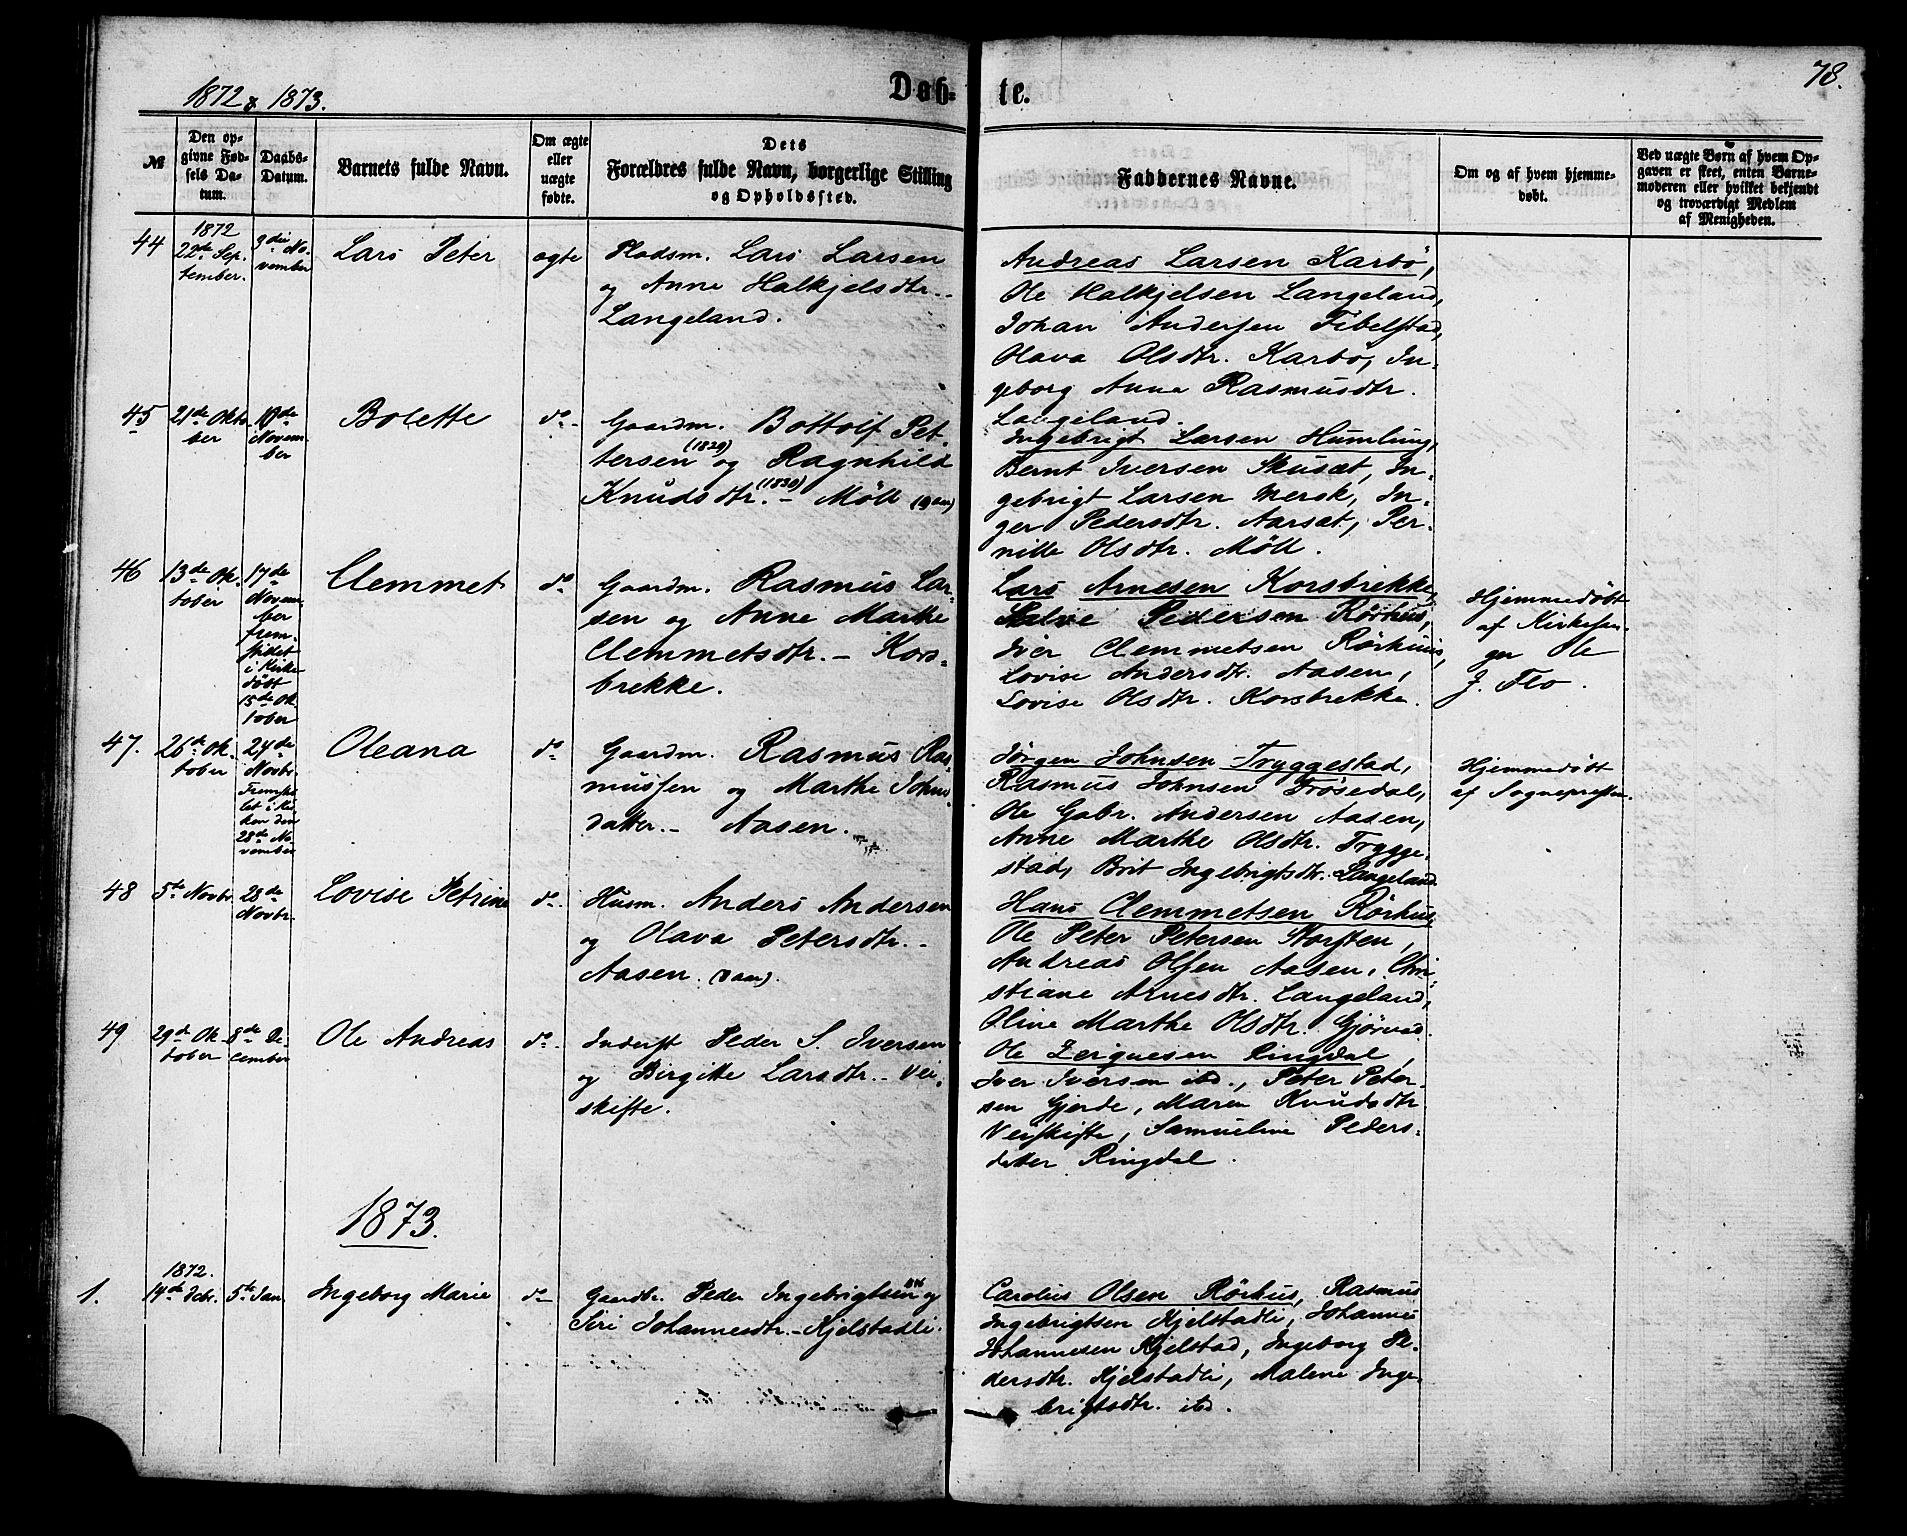 1872 & 1873.
Døb-
te.
78.
№
Den op-
givne Fød-
sels Da-
tum.
Daabs-
Datum.
Barnets fulde Navn.
Om ægte
eller
uægte
fødte.
Dets
Forældres fulde Navn, borgerlige Stilling
og Opholdssted.
Faddernes Navne.
Om og af hvem hjemme-
døbt.
Ved uægte Børn af hvem Op-
gaven er skeet, enten Barne-
moderen eller hvilket bekjendt
og troværdigt Medlem
af Menigheden.
44
1872
22de Sep-
tember.
3die No-
vember
Lars Peter
ægte
Pladsm. Lars Larsen
og Anne Halkjelsdtr. -
Langeland.
Andreas Larsen Karbö,
Ole Halkjelsen Langeland,
Johan Andersen Fibelstad,
Olava Olsdtr. Karbö, In-
geborg Anna Rasmusdtr.
Langeland.
45
21de Okto-
ber
10de
Novem-
ber
Bolette
do -
Gaardm. Bottolf Pet-
tersen (1829) og Ragnhild
Knudsdtr. (1830) - Möll
Ingebrigt Larsen Humlung,
Bernt Iversen Skusæt, In-
gebrigt Larsen Mersk, In-
ger Pedersdtr. Aarsæt, Per-
nille Olsdtr. Möll.
46
13de Ok-
tober
17de
Novem-
ber
frem-
stillet
i Kirke
döbt
15de Ok-
tober
Clemmet
do
Gaardm. Rasmus Lar-
sen og Anne Marthe
Clemmetsdtr. - Kors-
brekke.
Lars Arnesen Korsbrekke,
Pedersen Rörhus,
Iver Clemmetsen Rörhuus,
Lovise Andersdtr. Aasen,
Lovise Olsdtr. Korsbrekke.
Hjemmedöbt
af Kirkesan-
ger Ole
J. Flo.
47.
26de Ok-
tober
24de
Novbr.
Fremstil-
let i Kir-
ken den
28de No-
vember
Oleana
do
Gaardm. Rasmus Ras-
mussen og Marthe Johns-
datter. - Aasen.
Jörgen Johnsen Tryggestad,
Rasmus Johnsen Frösedal,
Ole Gabr. Andersen Aasen,
Anne Marthe Olsdtr. Trygge-
stad, Brit Ingebrigtsdtr. Langeland
Hjemmedöbt
af Sognepresten.
48
5te Novbr.
28de
Novbr.
Lovise Petrine
do -
Husm. Anders Andersen
og Olava Petersdtr. -
Aasen.
Hans Clemmetsen Rörhus,
Ole Peter Petersen Storsten,
Andreas Olsen Aasen, Chri-
stiane Arnesdtr. Langeland,
Oline Marthe Olsdtr. Gjörvad.
49
29de Ok-
tober
8de De-
cember
Ole Andreas
do -
Inderst Peder S. Iversen
og Birgitte Larsdtr. - Vei-
skifte.
Ole Zerquesen Ringdal,
Iver Iversen ibd., Peter Peter-
sen Gjerde, Maren Knudsdtr
Veiskifte, Samueline Peders-
datter Ringdal.
1873.
1.
1872.
14de Dcbr.
5te Jan.
Ingeborg Marie
do -
Gaardbr. Peder Ingebrigtsen og
Siri Johannesdtr. - Kjelstadli.
Carolus Olsen Rörhus, Rasmus
Ingebrigtsen Kjelstadli, Johannes
Johannesen Kjelstad, Ingeborg Pe-
dersdtr. Kjelstadli, Malene Inge-
brigtsdtr. ibd.